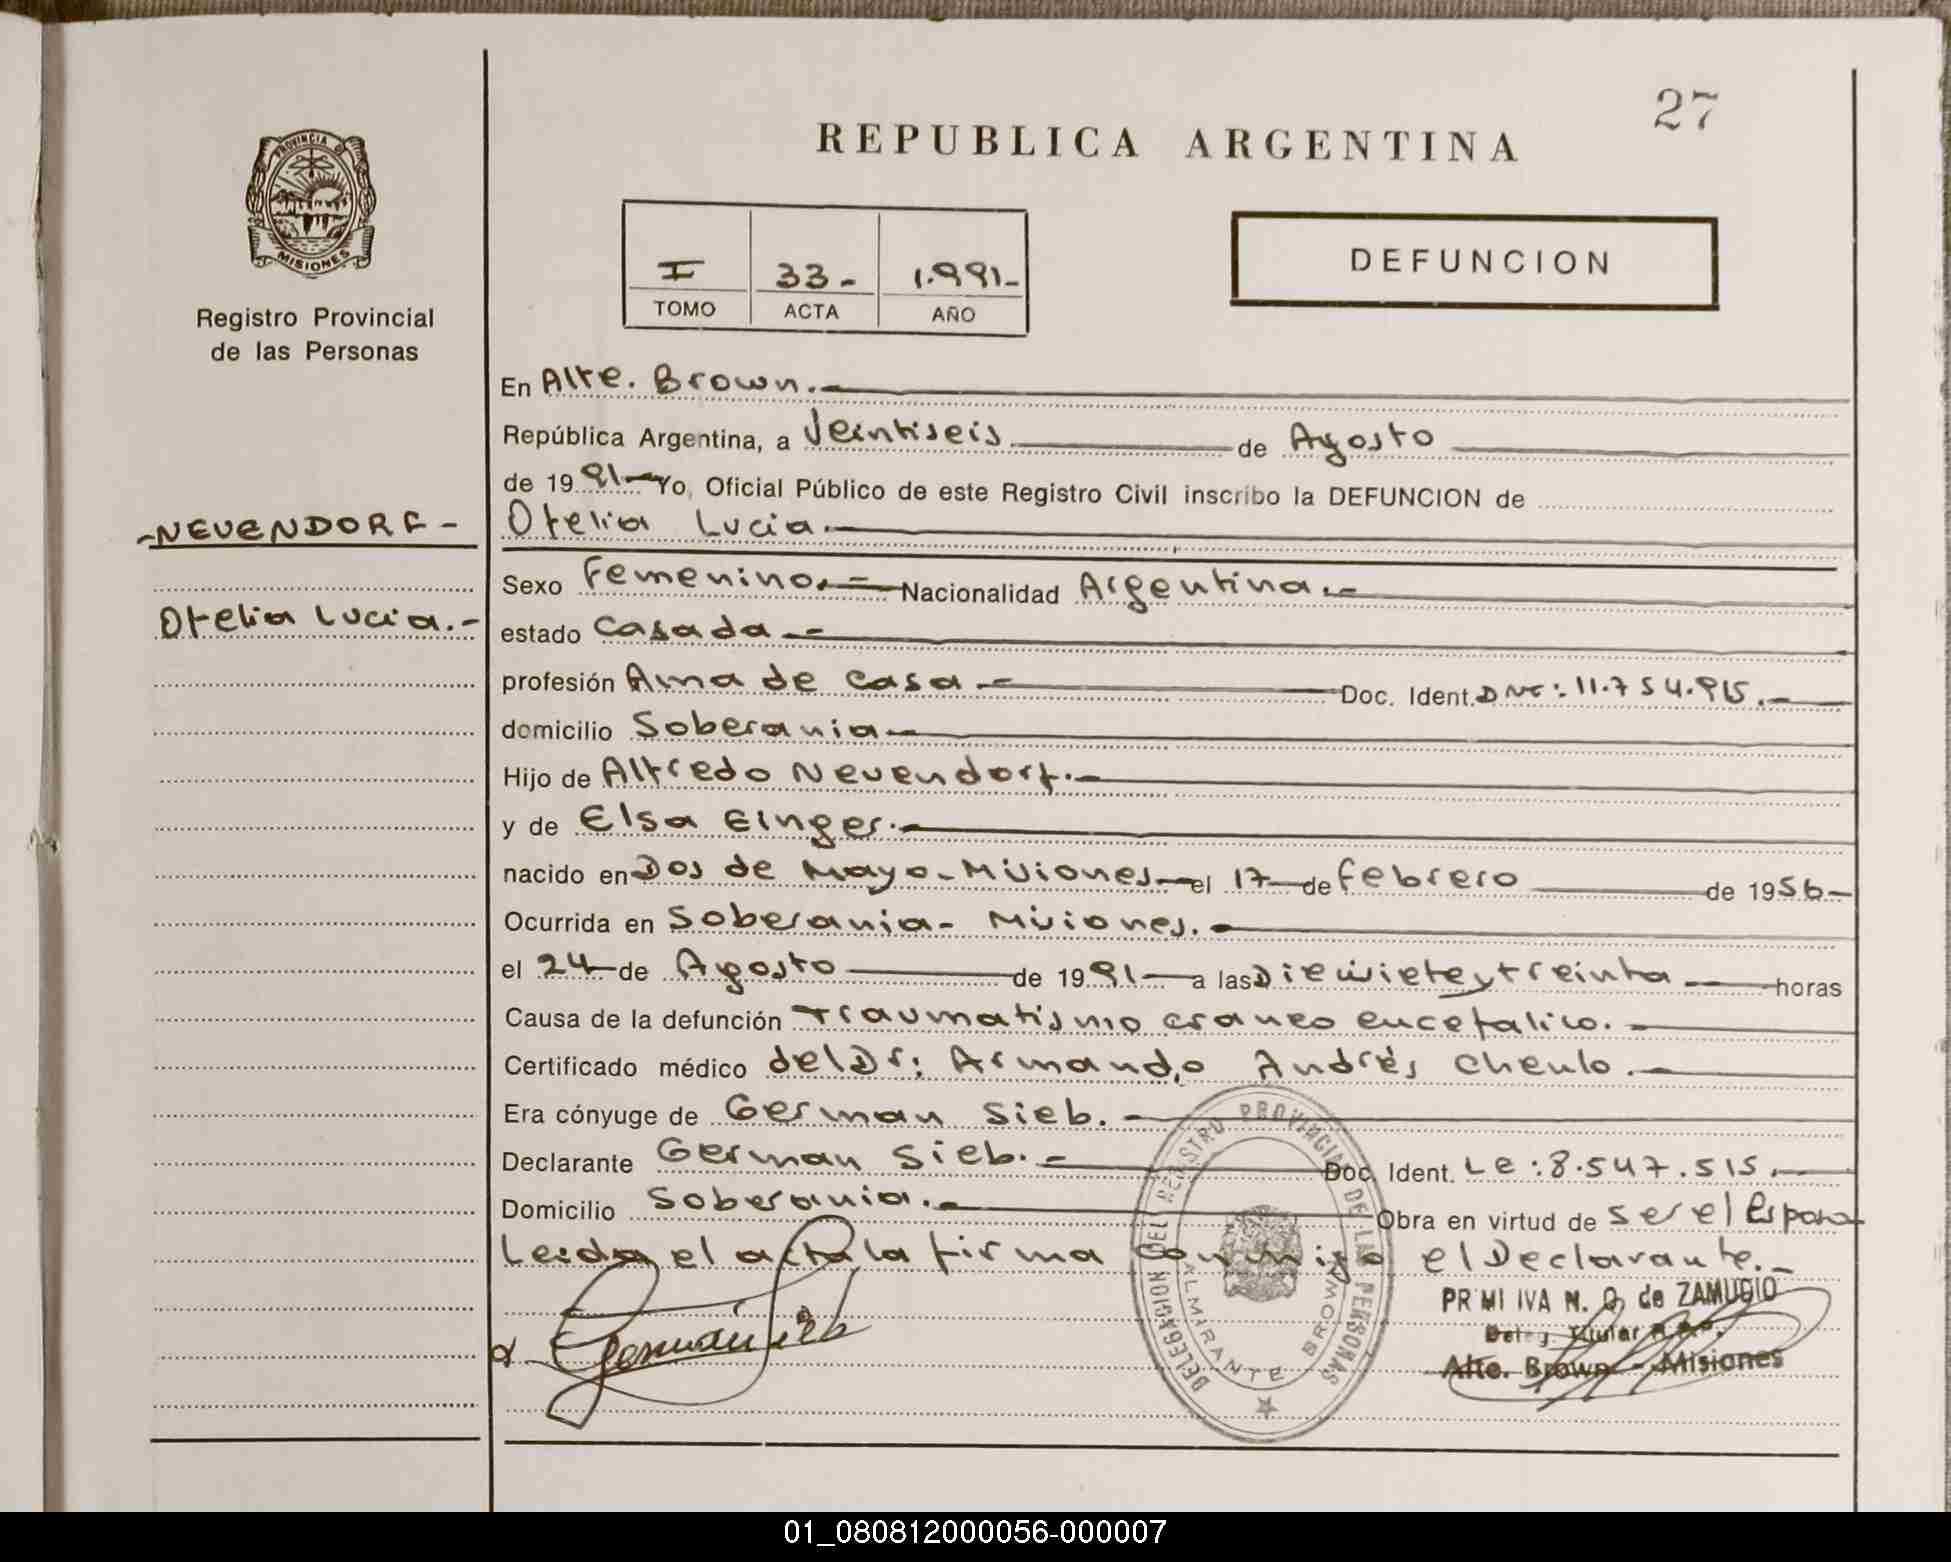 27
REPUBLICA ARGENTINA
PROVINCIA D
MISIONES
Registro Provincial
de las Personas
I 33- 1.991-
TOMO ACTA AÑO
DEFUNCION
En Alte. Brown.-
República Argentina, a Veintiseis de Agosto
de 1991- Yo, Oficial Público de este Registro Civil inscribo la DEFUNCION de
-NEUENDORF-
Otelia Lucia.-
Otelia Lucia.-
Sexo Femenino.- Nacionalidad Argentina.-
estado Casada.-
profesión Ama de casa- Doc. Ident. DNI: 11.754.915.-
domicilio Soberania-
Hijo de Alfredo Neuendorf.-
y de Elsa Einger.-
nacido en Dos de Mayo-Misiones- el 17- de febrero de 1956-
Ocurrida en Soberania- Misiones.-
el 24- de Agosto de 1991- a las Diesiete y treinta horas
Causa de la defunción Traumatismo craneo encefalico.-
Certificado médico del Dr: Armando Andrés Chenlo.-
Era cónyuge de German Sieb.-
Declarante German Sieb.- Doc. Ident. LE: 8.547.515.-
Domicilio Soberania.- Obra en virtud de ser el Esposo
Leida el acta la firma conmigo el Declarante.-
German Sieb
DELEGACION DEL REGISTRO PROVINCIAL DE LAS PERSONAS
ALMIRANTE BROWN
PRIMI IVA N. O. de ZAMUDIO
Deleg. Titular R.P.P.
Alte. Brown - Misiones
01_080812000056-000007